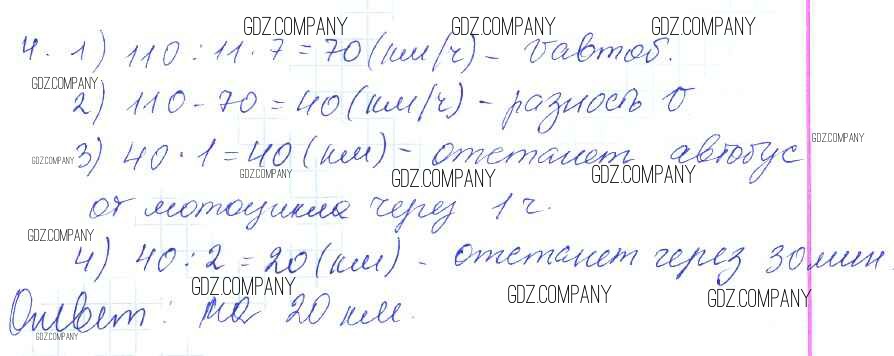 GDZ.COMPANY GDZ.COMPANY GDZ.COMPANY
4. 1) 110 : 11 · 7 = 70 (км/ч) - vавтоб.
GDZ.COMPANY
2) 110 - 70 = 40 (км/ч) - разность v
3) 40 · 1 = 40 (км) - отстанет автобус
GDZ.COMPANY GDZ.COMPANY
GDZ.COMPANY GDZ.COMPANY GDZ.COMPANY
от мотоцикла через 1 ч.
GDZ.COMPANY
4) 40 : 2 = 20 (км) - отстанет через 30 мин.
GDZ.COMPANY GDZ.COMPANY GDZ.COMPANY
Ответ: на 20 км.
GDZ.COMPANY